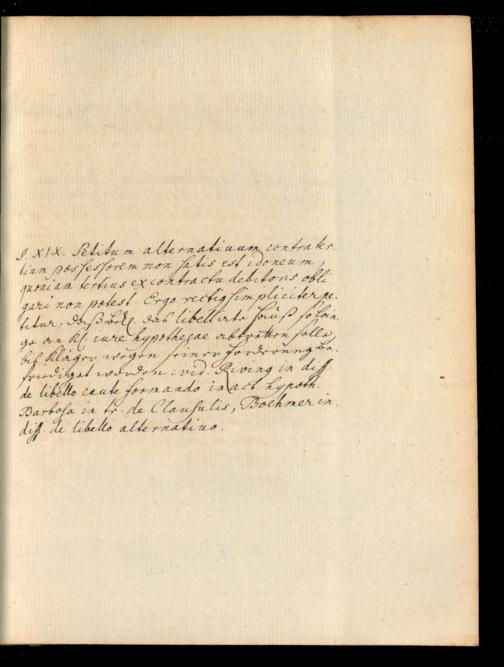 §. XIX. Petitum alternativum contra ter-
tium possessorem non satis est idoneum,
quoniam tertius ex contractu debitoris obli
gari non potest. Ergo rectiq simpliciter pe-
titur, daß Bekl. das libellirte Hauß so lan-
ge an Kl. iure hypothecae abtretten solle
biß Kläger wegen seiner Forderung be-
friediget worden: vid. Giving in diss.
de libello caute formando in act. hypoth.
Barbosa in tr. de Clausulis, Boehmer in
diss. de libello alternativo.